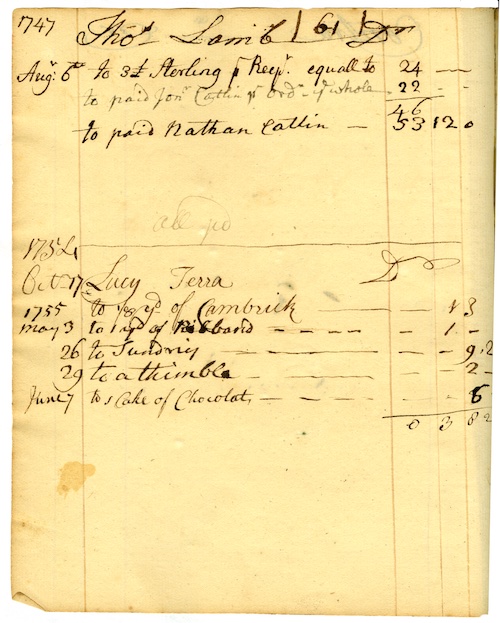 1747 Thos Lamb 61 Dr
Augt 6th to 3£ Sterling pr Recpt. equall to 24 — —
to paid Jonn Catlin pr Ordr ye whole 22 - -
46
to paid Nathan Catlin — 53 12 0
all pd
1754
Octr 17 Lucy Terra Dr
1755 to yd of Cambrick — — 1 3
may 3 to 1 yd of Ribband — — — — — 1 —
26 to Sundries — — — — — — 9.2
29 to a thimble — — — — — — 2 —
June 7 to 1 Cake of Chocolat — — — — 6
0 3 8 2